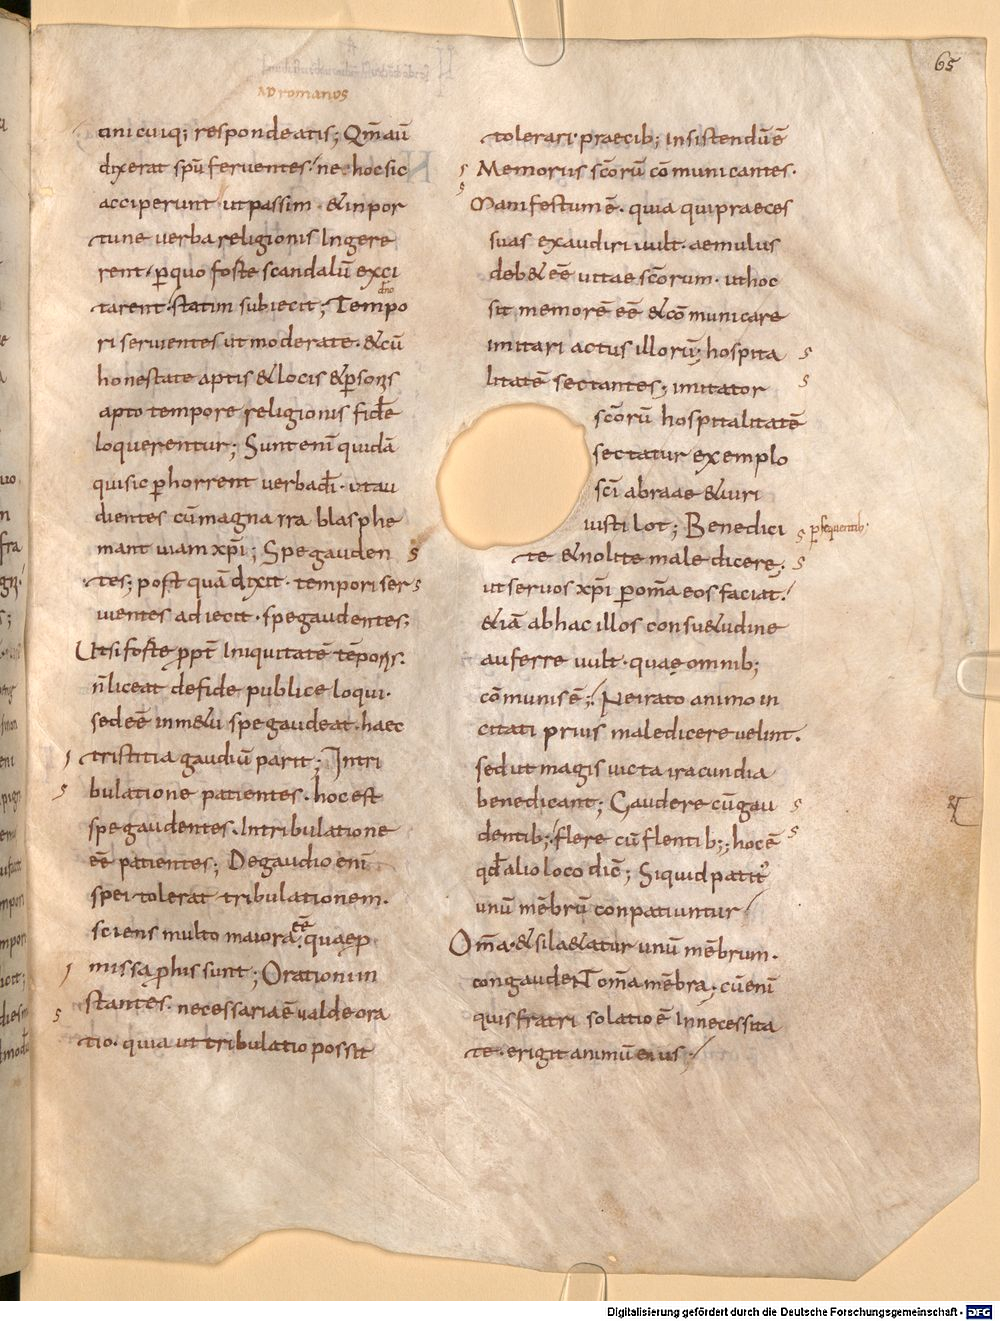 65
AD romanos
uni cuiq; respondeatis; Qm̄ aū
dixerat spū feruentes ne hoc sic
acciperunt ut passim · & inpor
tune uerba religionis Ingere
rent · ꝑ quo forte scandalū exci
tarent · statim subiecit; Tempo
dn̄o
ri seruientes ut moderate · & cū
honestate aptis & locis & ꝑsonis
apto tempore religionis fidē
loquerentur; Sunt enī quidā
qui sic ꝑhorrent uerba dī · ut au
dientes cū magna ira blasphe
mant uiam xp̄i; Spe gauden
tes; post quā dixit · tempori ser
uientes adiecit · spe gaudentes;
Ut si forte ꝓpt̄ Iniquitatē tēporis ·
n̄ liceat de fide publice loqui ·
sed eē in metu spe gaudeat · haec
tristitia gaudiū parit; In tri
bulatione patientes · hoc est
spe gaudentes · In tribulatione
eē patientes; De gaudio enī
spei tolerat tribulationem ·
sciens multo maiora eē quae ꝓ
missa prius sunt; Orationi in
stantes · necessaria ē ualde ora
tio · quia ut tribulatio possit
tolerari · praecib; insistendū ē
Memoriis sc̄orū cōmunicantes ·
Manifestum ē · quia qui praeces
suas exaudiri uult · aemulus
deb& eē uitae sc̄orum · ut hoc
sit memorē eē & cōmunicare
imitari actus illorū; hospita
litatē sectantes; imitator
sc̄orū hospitalitatē
sectatur exemplo
sc̄i abraae & uiri
iusti lot; Benedici
ꝑsequentib;
te & nolite maledicere;
ut seruos xp̄i ꝑ om̄a eos faciat ·
& iā ab hac illos consu&udine
auferre uult · quae omnib;
cōmunis ē; Ne irato animo in
citati prius maledicere uelint ·
sed ut magis uicta iracundia
benedicant; Gaudere cū gau
dentib; flere cū flentib; hoc ē
qd̄ alio loco dic̄; Si quid patit᷑
unū mēbrū conpatiuntur
Om̄a · & si la&atur unū mēbrum ·
congaudeNT om̄a mēbra; cū enī
quis fratri solatio ē In necessita
te · erigit animū eius;
Digitalisierung gefördert durch die Deutsche Forschungsgemeinschaft - DFG